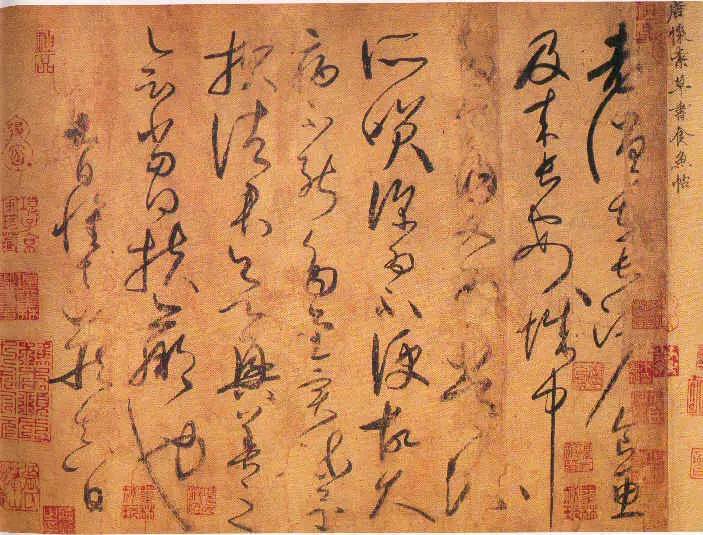 唐懷素草書食魚帖
老僧在長沙食魚
及來長安城中
多食肉又為常流
所笑深為不便故久
病不能多書實疏還
報諸君欲興善之
會當得扶羸也
九日懷素藏真白
神品